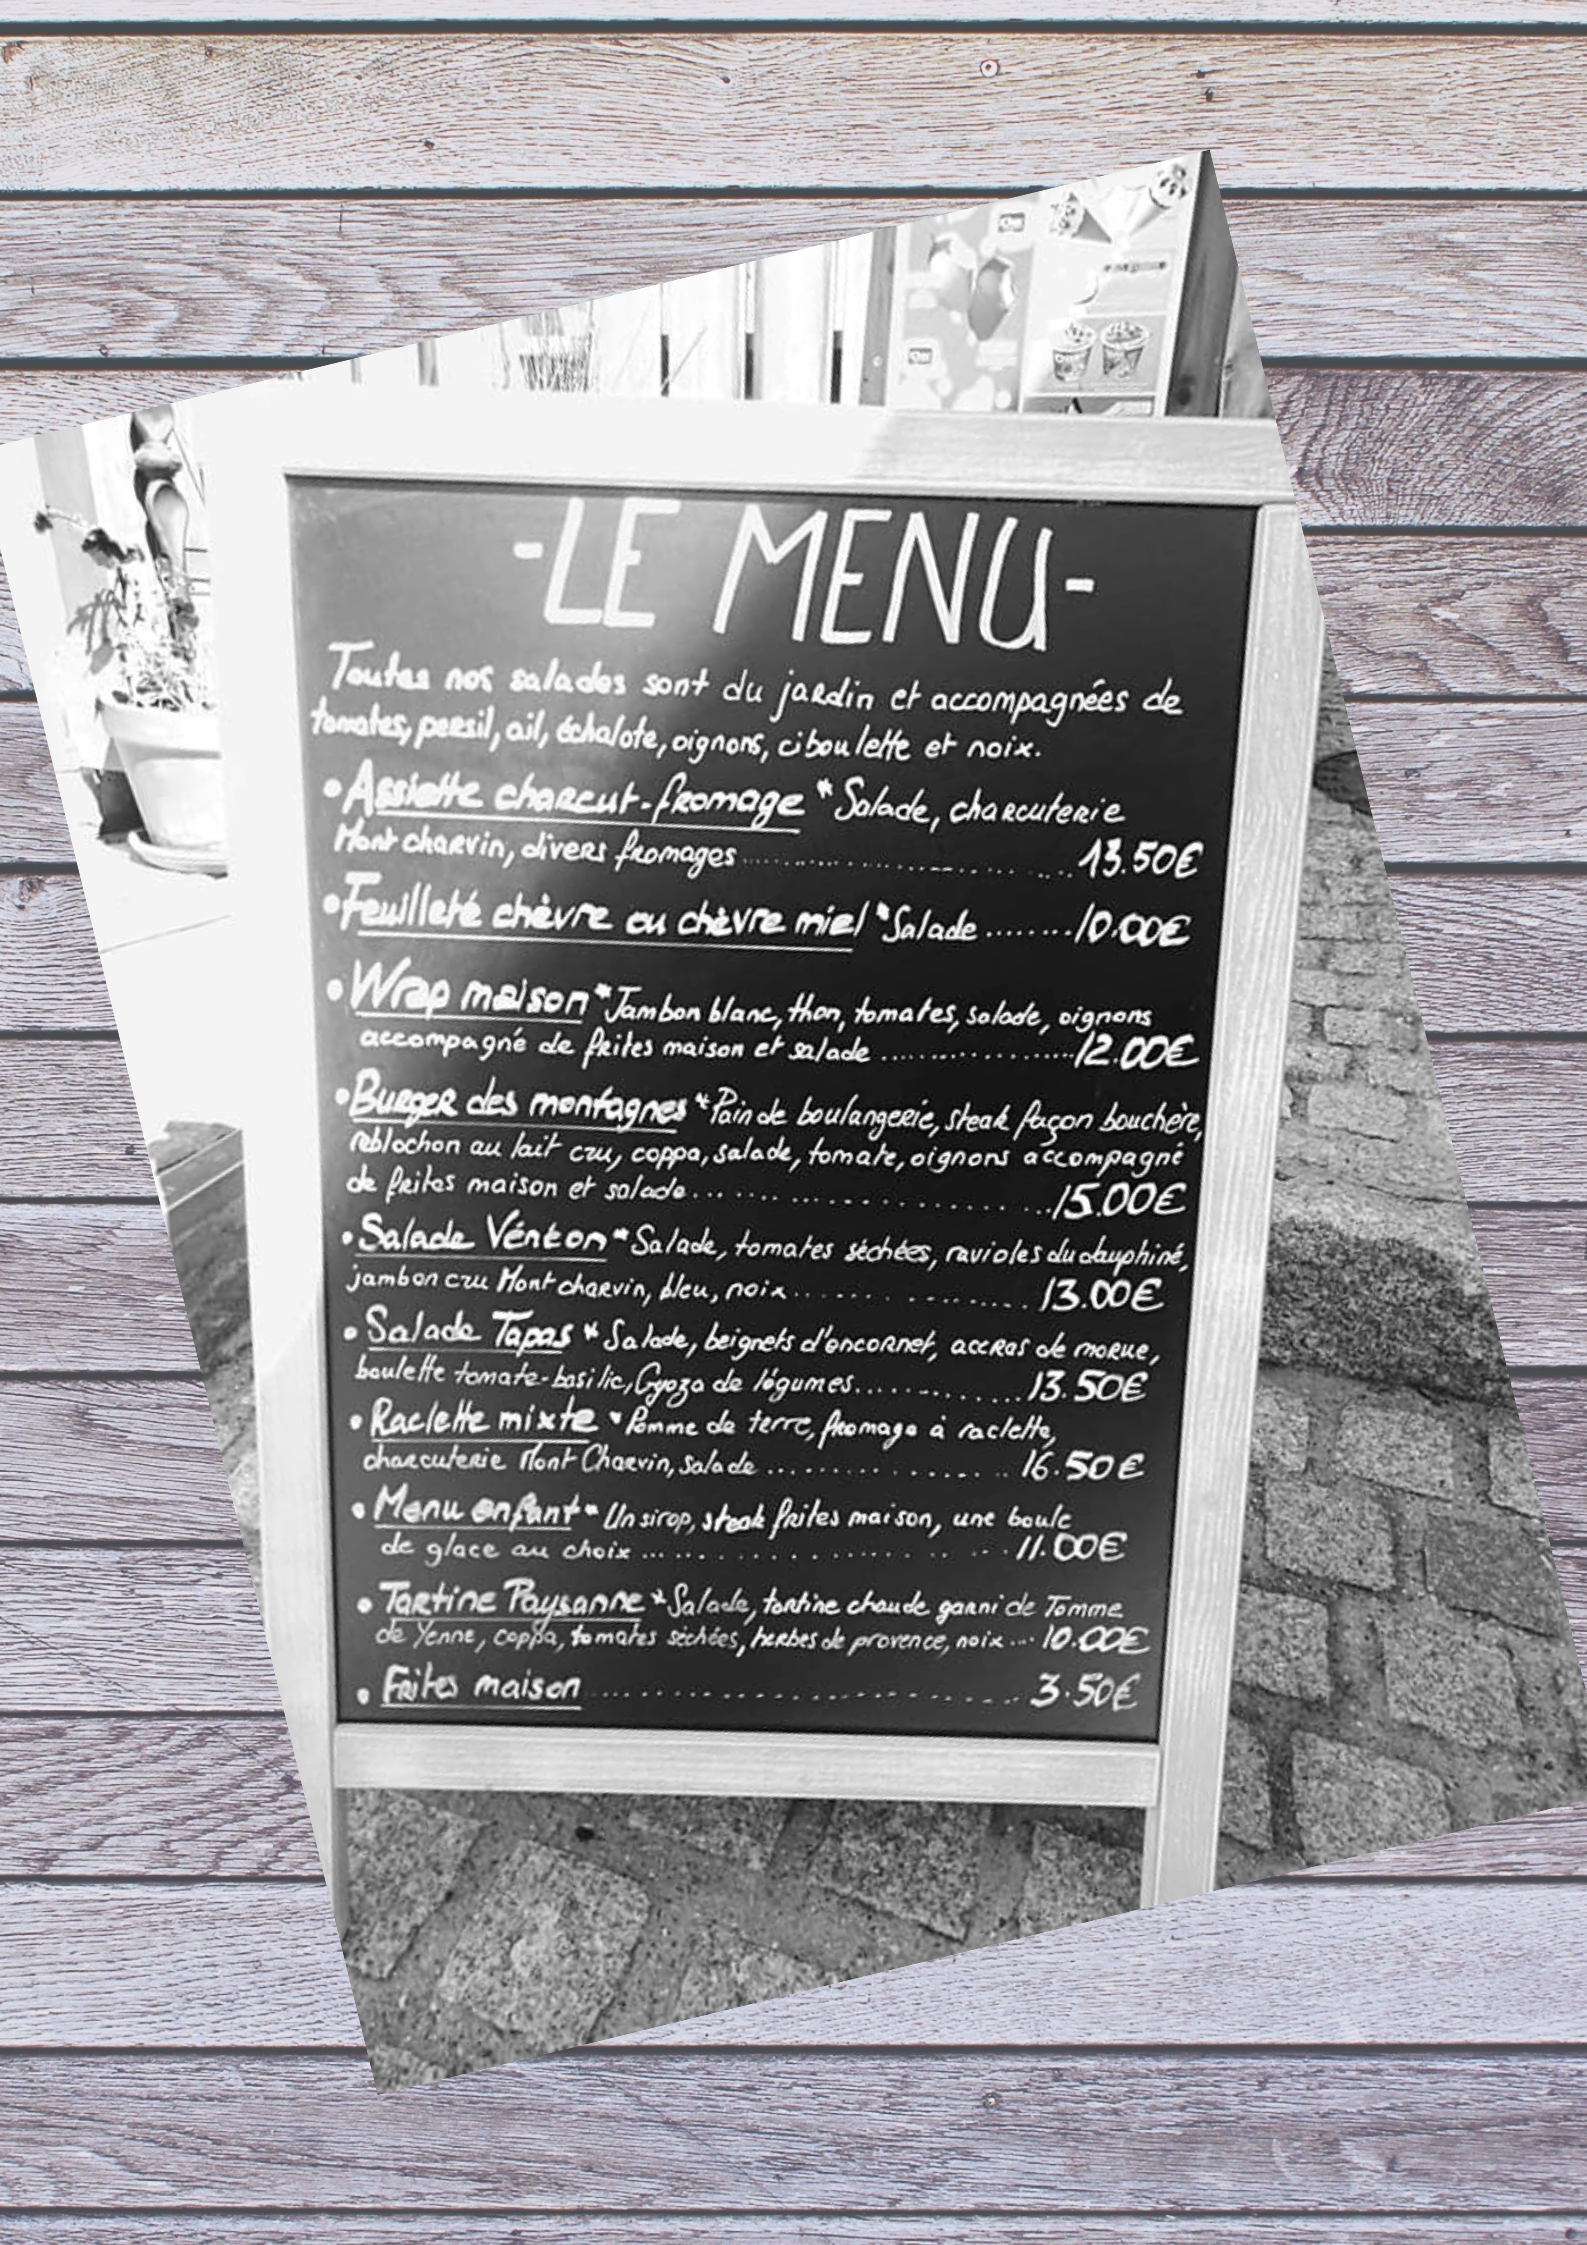 -LE MENU-
Toutes nos salades sont du jardin et accompagnées de
tomates, persil, ail, échalote, oignons, ciboulette et noix.
• Assiette charcut-fromage * Salade, charcuterie
Mont charvin, divers fromages .................... 13.50€
• Feuilleté chèvre ou chèvre miel * Salade ........ 10.00€
• Wrap maison * Jambon blanc, thon, tomates, salade, oignons
accompagné de frites maison et salade .................... 12.00€
• Burger des montagnes * Pain de boulangerie, steak façon bouchère,
reblochon au lait cru, coppa, salade, tomate, oignons accompagné
de frites maison et salade .................... 15.00€
• Salade Vénton * Salade, tomates séchées, ravioles du dauphiné,
jambon cru Mont charvin, bleu, noix .................... 13.00€
• Salade Tapas * Salade, beignets d'encornet, accras de morue,
boulette tomate-basilic, Gyoza de légumes .................... 13.50€
• Raclette mixte * Pomme de terre, fromage à raclette,
charcuterie Mont Charvin, salade .................... 16.50€
• Menu enfant * Un sirop, steak frites maison, une boule
de glace au choix .................... 11.00€
• Tartine Paysanne * Salade, tartine chaude garni de Tomme
de Yenne, coppa, tomates séchées, herbes de provence, noix ... 10.00€
• Frites maison .................... 3.50€